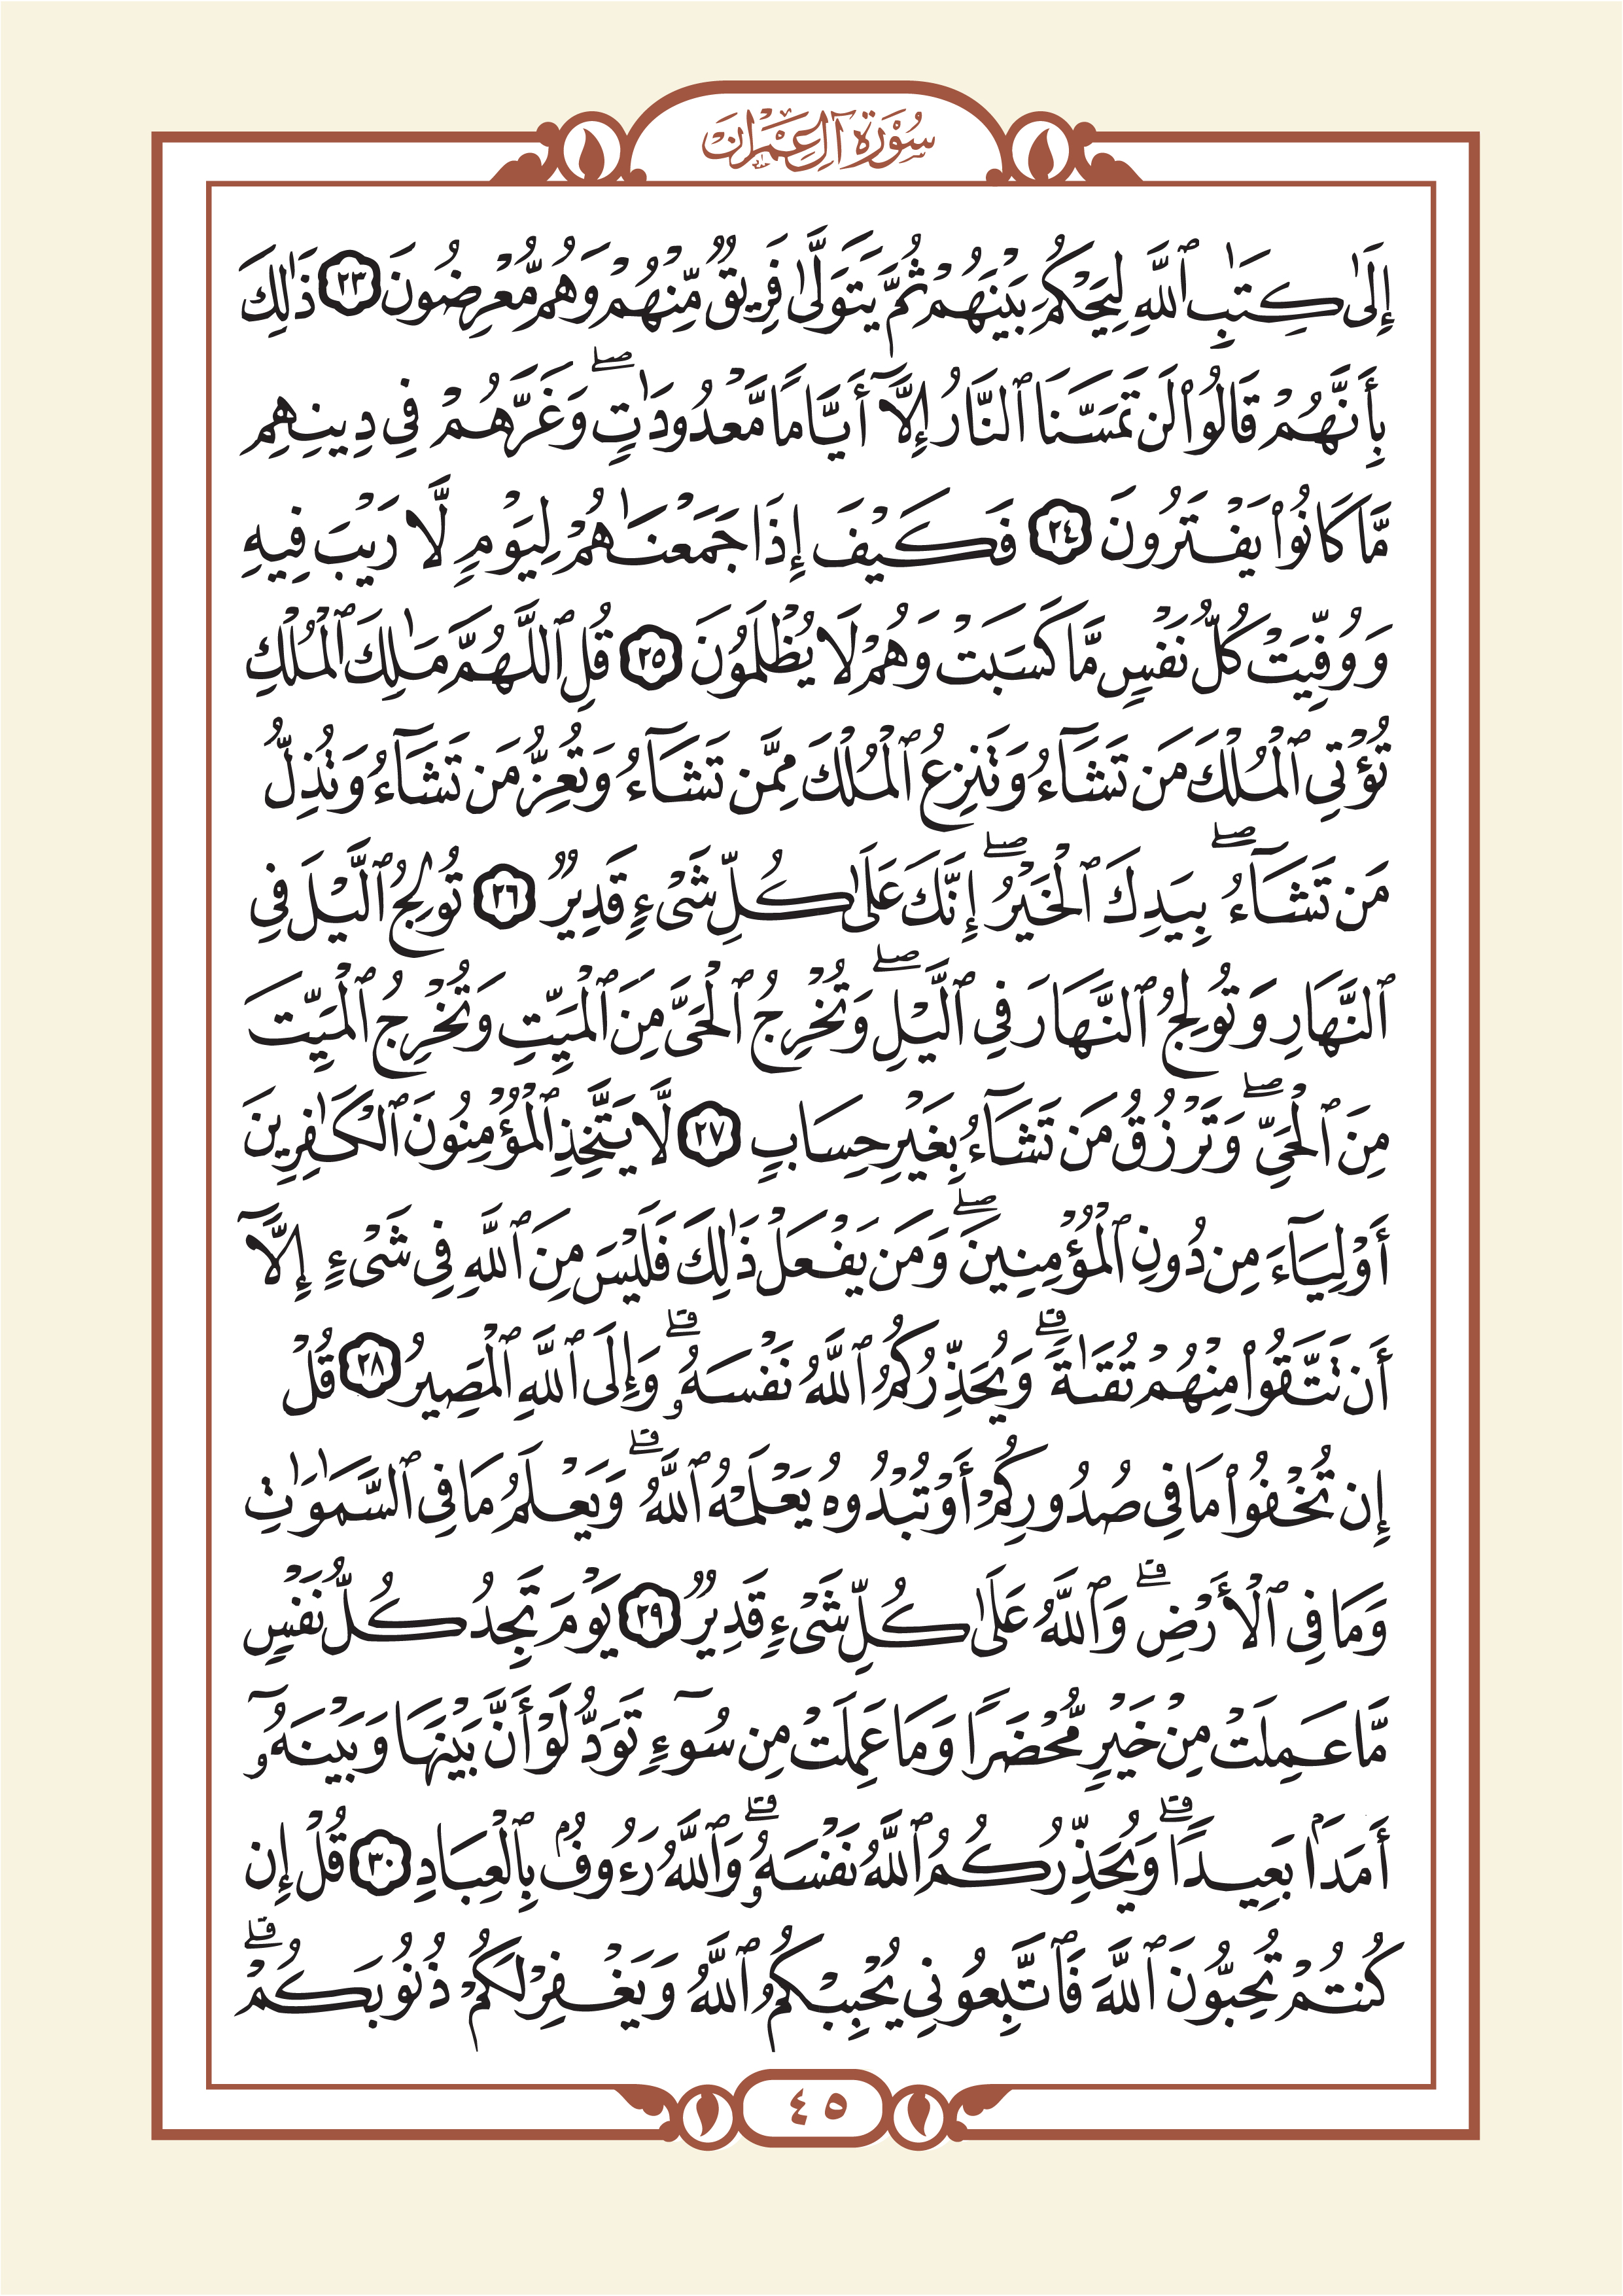 سُورَةُ آلِ عِمْرَانَ
إِلَىٰ كِتَٰبِ ٱللَّهِ لِيَحْكُمَ بَيْنَهُمْ ثُمَّ يَتَوَلَّىٰ فَرِيقٌ مِّنْهُمْ وَهُم مُّعْرِضُونَ ٢٣ ذَٰلِكَ
بِأَنَّهُمْ قَالُوا۟ لَن تَمَسَّنَا ٱلنَّارُ إِلَّآ أَيَّامًا مَّعْدُودَٰتٍ ۖ وَغَرَّهُمْ فِى دِينِهِم
مَّا كَانُوا۟ يَفْتَرُونَ ٢٤ فَكَيْفَ إِذَا جَمَعْنَٰهُمْ لِيَوْمٍ لَّا رَيْبَ فِيهِ
وَوُفِّيَتْ كُلُّ نَفْسٍ مَّا كَسَبَتْ وَهُمْ لَا يُظْلَمُونَ ٢٥ قُلِ ٱللَّهُمَّ مَٰلِكَ ٱلْمُلْكِ
تُؤْتِى ٱلْمُلْكَ مَن تَشَآءُ وَتَنزِعُ ٱلْمُلْكَ مِمَّن تَشَآءُ وَتُعِزُّ مَن تَشَآءُ وَتُذِلُّ
مَن تَشَآءُ ۖ بِيَدِكَ ٱلْخَيْرُ ۖ إِنَّكَ عَلَىٰ كُلِّ شَىْءٍ قَدِيرٌ ٢٦ تُولِجُ ٱلَّيْلَ فِى
ٱلنَّهَارِ وَتُولِجُ ٱلنَّهَارَ فِى ٱلَّيْلِ ۖ وَتُخْرِجُ ٱلْحَىَّ مِنَ ٱلْمَيِّتِ وَتُخْرِجُ ٱلْمَيِّتَ
مِنَ ٱلْحَىِّ ۖ وَتَرْزُقُ مَن تَشَآءُ بِغَيْرِ حِسَابٍ ٢٧ لَّا يَتَّخِذِ ٱلْمُؤْمِنُونَ ٱلْكَٰفِرِينَ
أَوْلِيَآءَ مِن دُونِ ٱلْمُؤْمِنِينَ ۖ وَمَن يَفْعَلْ ذَٰلِكَ فَلَيْسَ مِنَ ٱللَّهِ فِى شَىْءٍ إِلَّآ
أَن تَتَّقُوا۟ مِنْهُمْ تُقَىٰةً ۗ وَيُحَذِّرُكُمُ ٱللَّهُ نَفْسَهُۥ ۗ وَإِلَى ٱللَّهِ ٱلْمَصِيرُ ٢٨ قُلْ
إِن تُخْفُوا۟ مَا فِى صُدُورِكُمْ أَوْ تُبْدُوهُ يَعْلَمْهُ ٱللَّهُ ۗ وَيَعْلَمُ مَا فِى ٱلسَّمَٰوَٰتِ
وَمَا فِى ٱلْأَرْضِ ۗ وَٱللَّهُ عَلَىٰ كُلِّ شَىْءٍ قَدِيرٌ ٢٩ يَوْمَ تَجِدُ كُلُّ نَفْسٍ
مَّا عَمِلَتْ مِنْ خَيْرٍ مُّحْضَرًا وَمَا عَمِلَتْ مِن سُوٓءٍ تَوَدُّ لَوْ أَنَّ بَيْنَهَا وَبَيْنَهُۥٓ
أَمَدًۢا بَعِيدًا ۗ وَيُحَذِّرُكُمُ ٱللَّهُ نَفْسَهُۥ ۗ وَٱللَّهُ رَءُوفٌۢ بِٱلْعِبَادِ ٣٠ قُلْ إِن
كُنتُمْ تُحِبُّونَ ٱللَّهَ فَٱتَّبِعُونِى يُحْبِبْكُمُ ٱللَّهُ وَيَغْفِرْ لَكُمْ ذُنُوبَكُمْ ۗ
٤٥